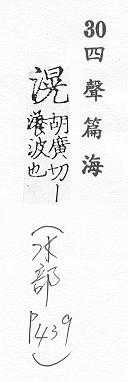 30 四聲篇海
滉 胡廣切丨
瀁波也
(水部
P439)